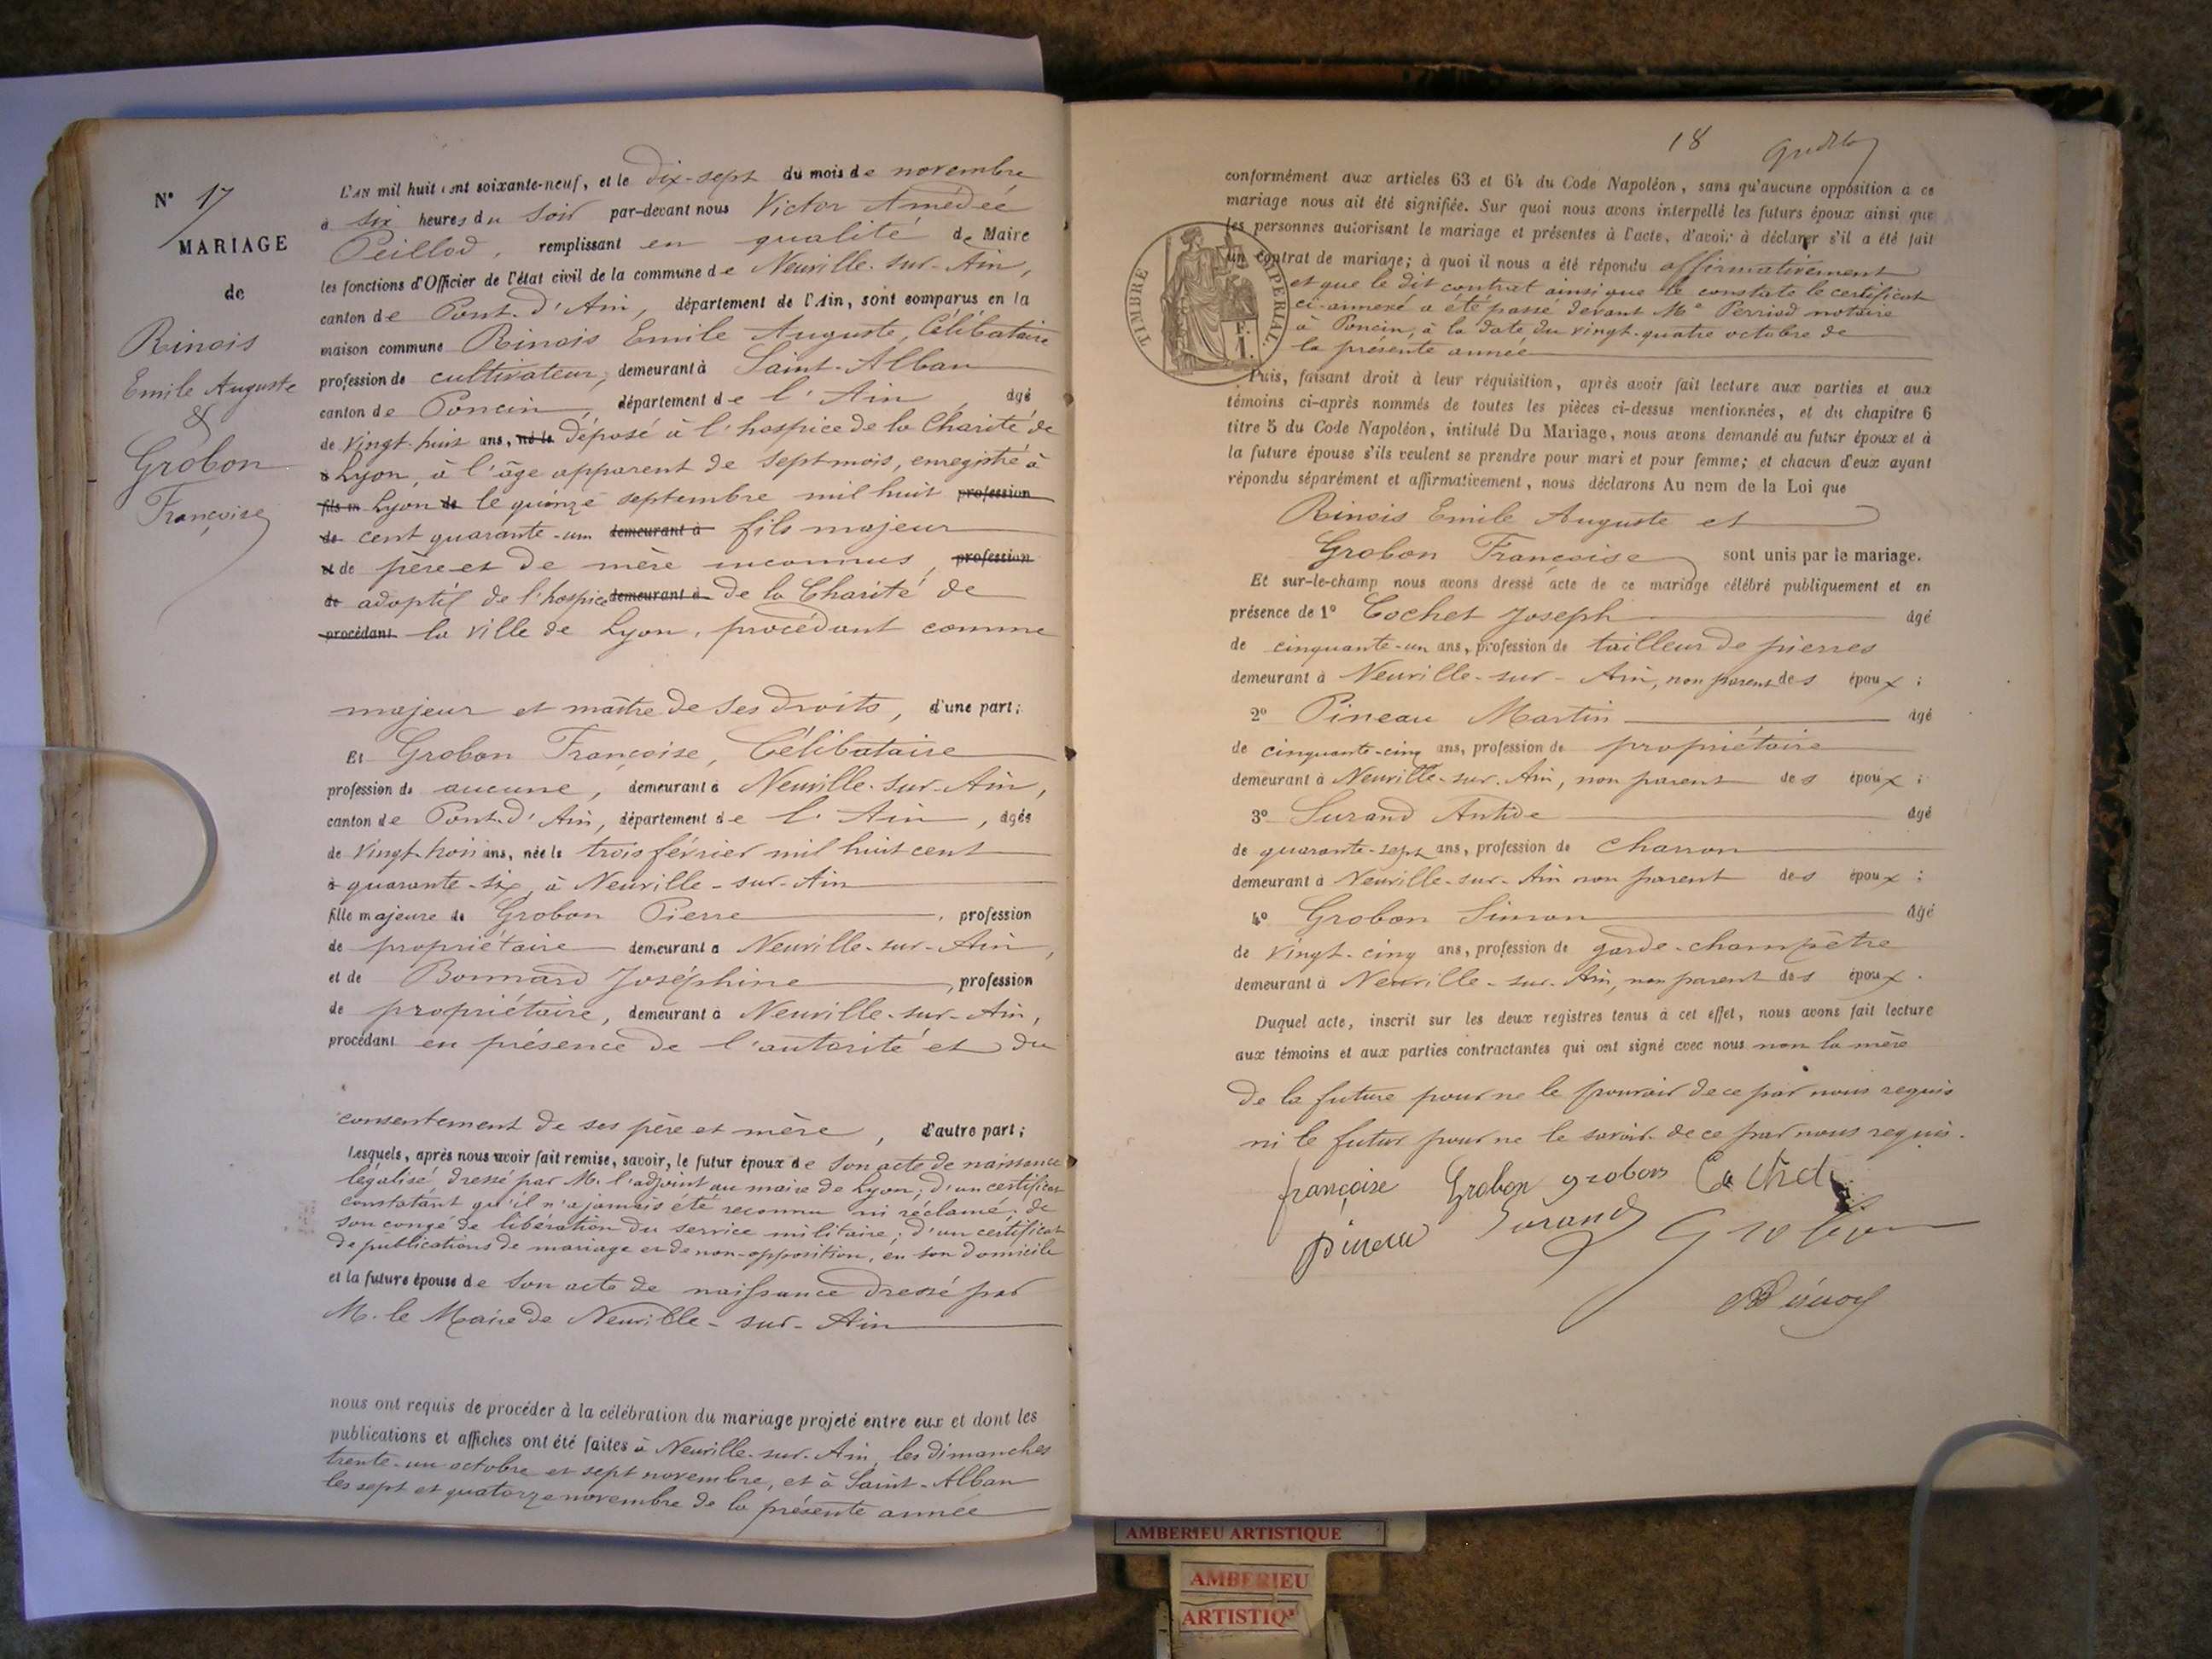 N° 17
MARIAGE
de
Rinois
Emile Auguste
&
Grobon
Françoise
L'AN mil huit cent soixante-neuf, et le dix-sept du mois de novembre
à six heures du soir par-devant nous Victor Amédée
Peillod, remplissant en qualité de Maire
les fonctions d'Officier de l'état civil de la commune de Neuville-sur-Ain,
canton de Pont-d'Ain, département de l'Ain, sont comparus en la
maison commune Rinois Emile Auguste, Célibataire
profession de cultivateur, demeurant à Saint-Alban
canton de Poncin, département de l'Ain, âgé
de vingt-huit ans, né le Déposé à l'hospice de la Charité de
à Lyon, à l'âge apparent de sept mois, enregistré à
fils m Lyon de le quinze septembre mil huit profession
de cent quarante-un demeurant à fils majeur
et de père et de mère inconnus, profession
de adoptif de l'hospice demeurant à de la Charité de
procédant la ville de Lyon, procédant comme
majeur et maître de ses droits, d'une part;
Et Grobon Françoise, Célibataire
profession de aucune, demeurant à Neuville-sur-Ain,
canton de Pont-d'Ain, département de l'Ain, âgée
de vingt-trois ans, née le trois février mil huit cent
à quarante-six, à Neuville-sur-Ain
fille majeure de Grobon Pierre, profession
de propriétaire demeurant à Neuville-sur-Ain,
et de Bonnard Joséphine, profession
de propriétaire, demeurant à Neuville-sur-Ain,
procédant en présence de l'autorité et du
consentement de ses père et mère, d'autre part;
Lesquels, après nous avoir fait remise, savoir, le futur époux de son acte de naissance
légalisé, dressé par M. l'adjoint au maire de Lyon; d'un certificat
constatant qu'il n'a jamais été reconnu ni réclamé; de
son congé de libération du service militaire; d'un certificat
de publications de mariage et de non-opposition, en son domicile
et la future épouse de son acte de naissance dressé par
M. le Maire de Neuville-sur-Ain
nous ont requis de procéder à la célébration du mariage projeté entre eux et dont les
publications et affiches ont été faites à Neuville-sur-Ain, les dimanches
trente-un octobre et sept novembre, et à Saint-Alban
les sept et quatorze novembre de la présente année
18
conformément aux articles 63 et 64 du Code Napoléon, sans qu'aucune opposition à ce
mariage nous ait été signifiée. Sur quoi nous avons interpellé les futurs époux ainsi que
les personnes autorisant le mariage et présentes à l'acte, d'avoir à déclarer s'il a été fait
un contrat de mariage; à quoi il nous a été répondu affirmativement
et que le dit contrat ainsi que le constate le certificat
ci-annexé a été passé devant Me Perriod notaire
à Poncin, à la date du vingt-quatre octobre de
la présente année
TIMBRE IMPERIAL.
F.
1.
Puis, faisant droit à leur réquisition, après avoir fait lecture aux parties et aux
témoins ci-après nommés de toutes les pièces ci-dessus mentionnées, et du chapitre 6
titre 5 du Code Napoléon, intitulé Du Mariage, nous avons demandé au futur époux et à
la future épouse s'ils veulent se prendre pour mari et pour femme; et chacun d'eux ayant
répondu séparément et affirmativement, nous déclarons Au nom de la Loi que
Rinois Emile Auguste et
Grobon Françoise sont unis par le mariage.
Et sur-le-champ nous avons dressé acte de ce mariage célébré publiquement et en
présence de 1° Cochet Joseph âgé
de cinquante-un ans, profession de tailleur de pierres
demeurant à Neuville-sur-Ain, non parent des époux;
2° Pineau Martin âgé
de cinquante-cinq ans, profession de propriétaire
demeurant à Neuville-sur-Ain, non parent des époux;
3° Surand Antide âgé
de quarante-sept ans, profession de charron
demeurant à Neuville-sur-Ain non parent des époux;
4° Grobon Simon âgé
de vingt-cinq ans, profession de garde-champêtre
demeurant à Neuville-sur-Ain, non parent des époux.
Duquel acte, inscrit sur les deux registres tenus à cet effet, nous avons fait lecture
aux témoins et aux parties contractantes qui ont signé avec nous non la mère
de la future pour ne le pouvoir de ce par nous requis
ni le futur pour ne le savoir de ce par nous requis.
françoise Grobon grobon Cochet
pineau Surand Grobon
AMBERIEU ARTISTIQUE
AMBERIEU
ARTISTIQ